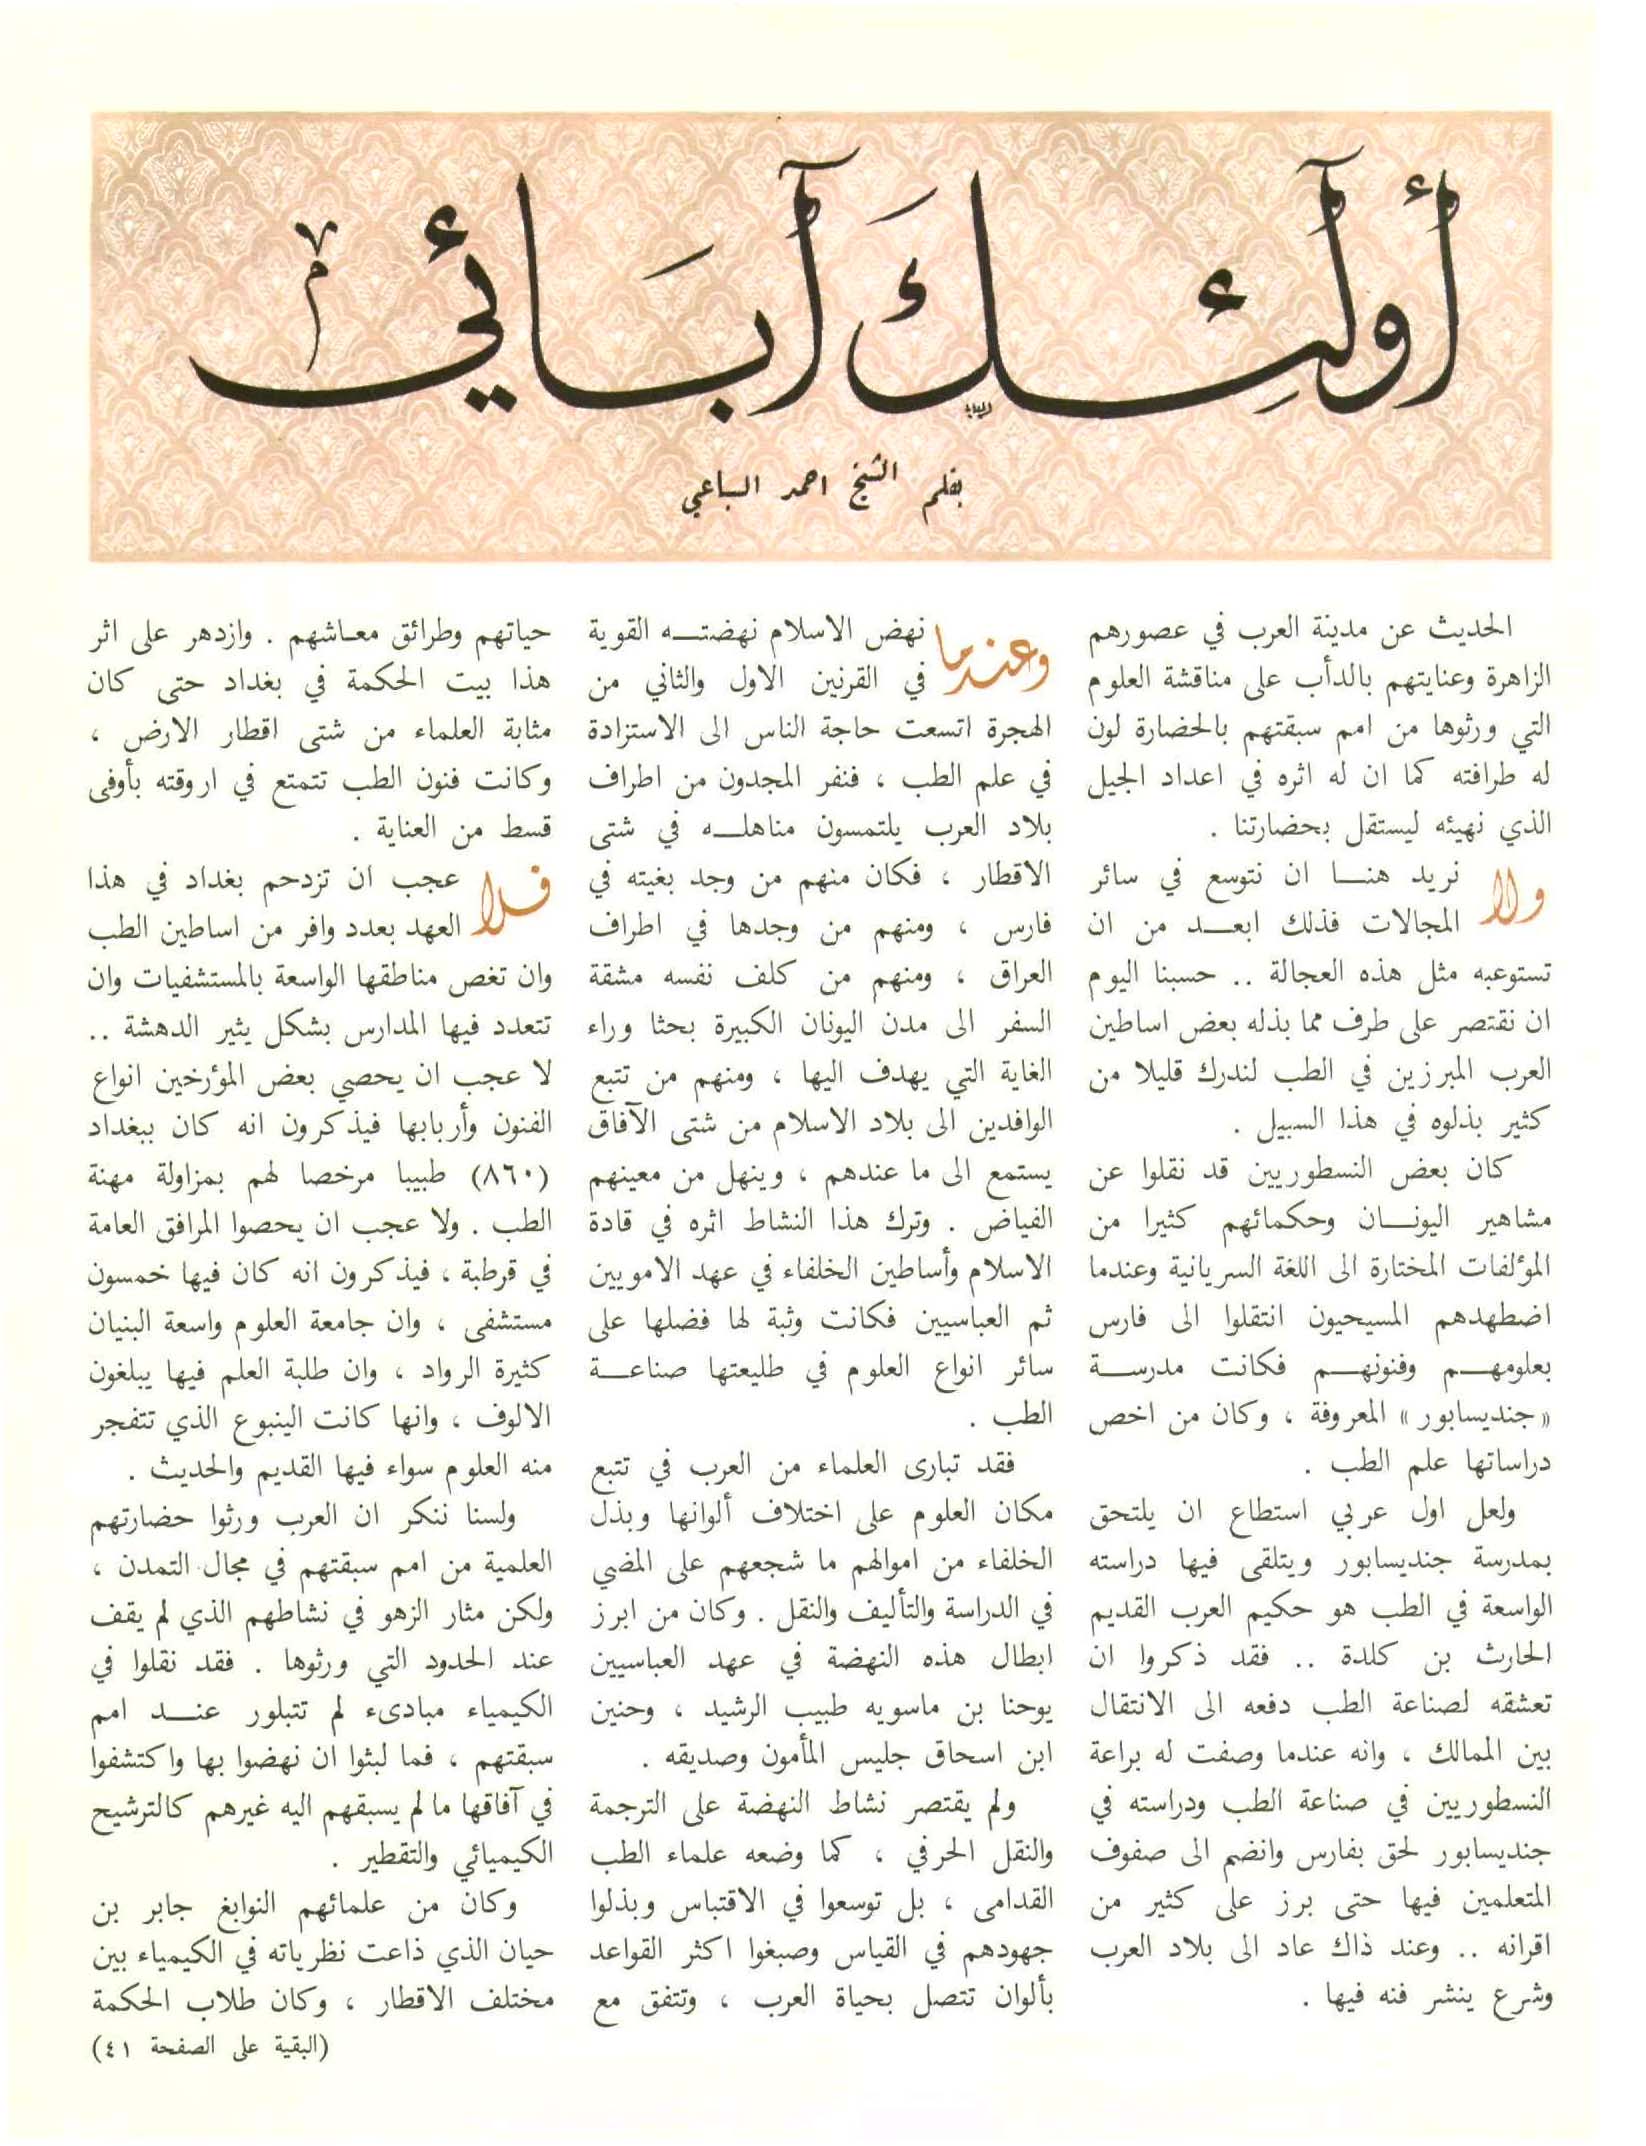 أولئك آبائي
بقلم الشيخ احمد السباعي
الحديث عن مدينة العرب في عصورهم
الزاهرة وعنايتهم بالدأب على مناقشة العلوم
التي ورثوها من امم سبقتهم بالحضارة لون
له طرافته كما ان له اثره في اعداد الجيل
الذي نهيئه ليستقل بحضارتنا .
ولا نريد هنا ان نتوسع في سائر
المجالات فذلك ابعد من ان
تستوعبه مثل هذه العجالة .. حسبنا اليوم
ان نقتصر على طرف مما بذله بعض اساطين
العرب المبرزين في الطب لندرك قليلا من
كثير بذلوه في هذا السبيل .
كان بعض النسطوريين قد نقلوا عن
مشاهير اليونان وحكمائهم كثيرا من
المؤلفات المختارة الى اللغة السريانية وعندما
اضطهدهم المسيحيون انتقلوا الى فارس
بعلومهم وفنونهم فكانت مدرسة
«جنديسابور» المعروفة ، وكان من اخص
دراساتها علم الطب .
ولعل اول عربي استطاع ان يلتحق
بمدرسة جنديسابور ويتلقى فيها دراسته
الواسعة في الطب هو حكيم العرب القديم
الحارث بن كلدة .. فقد ذكروا ان
تعشقه لصناعة الطب دفعه الى الانتقال
بين الممالك ، وانه عندما وصفت له براعة
النسطوريين في صناعة الطب ودراسته في
جنديسابور لحق بفارس وانضم الى صفوف
المتعلمين فيها حتى برز على كثير من
اقرانه .. وعند ذاك عاد الى بلاد العرب
وشرع ينشر فنه فيها .
وعندما نهض الاسلام نهضته القوية
في القرنين الاول والثاني من
الهجرة اتسعت حاجة الناس الى الاستزادة
في علم الطب ، فنفر المجدون من اطراف
بلاد العرب يلتمسون مناهله في شتى
الاقطار ، فكان منهم من وجد بغيته في
فارس ، ومنهم من وجدها في اطراف
العراق ، ومنهم من كلف نفسه مشقة
السفر الى مدن اليونان الكبيرة بحثا وراء
الغاية التي يهدف اليها ، ومنهم من تتبع
الوافدين الى بلاد الاسلام من شتى الآفاق
يستمع الى ما عندهم ، وينهل من معينهم
الفياض . وترك هذا النشاط اثره في قادة
الاسلام وأساطين الخلفاء في عهد الامويين
ثم العباسيين فكانت وثبة لها فضلها على
سائر انواع العلوم في طليعتها صناعة
الطب .
فقد تبارى العلماء من العرب في تتبع
مكان العلوم على اختلاف ألوانها وبذل
الخلفاء من اموالهم ما شجعهم على المضي
في الدراسة والتأليف والنقل . وكان من ابرز
ابطال هذه النهضة في عهد العباسيين
يوحنا بن ماسويه طبيب الرشيد ، وحنين
ابن اسحاق جليس المأمون وصديقه .
ولم يقتصر نشاط النهضة على الترجمة
والنقل الحرفي ، كما وضعه علماء الطب
القدامى ، بل توسعوا في الاقتباس وبذلوا
جهودهم في القياس وصبغوا اكثر القواعد
بألوان تتصل بحياة العرب ، وتتفق مع
حياتهم وطرائق معاشهم . وازدهر على اثر
هذا بيت الحكمة في بغداد حتى كان
مثابة العلماء من شتى اقطار الارض ،
وكانت فنون الطب تتمتع في اروقته بأوفى
قسط من العناية .
فلا عجب ان تزدحم بغداد في هذا
العهد بعدد وافر من اساطين الطب
وان تغص مناطقها الواسعة بالمستشفيات وان
تتعدد فيها المدارس بشكل يثير الدهشة ..
لا عجب ان يحصي بعض المؤرخين انواع
الفنون وأربابها فيذكرون انه كان ببغداد
(٨٦٠) طبيبا مرخصا لهم بمزاولة مهنة
الطب . ولا عجب ان يحصوا المرافق العامة
في قرطبة ، فيذكرون انه كان فيها خمسون
مستشفى ، وان جامعة العلوم واسعة البنيان
كثيرة الرواد ، وان طلبة العلم فيها يبلغون
الالوف ، وانها كانت الينبوع الذي تتفجر
منه العلوم سواء فيها القديم والحديث .
ولسنا ننكر ان العرب ورثوا حضارتهم
العلمية من امم سبقتهم في مجال التمدن ،
ولكن مثار الزهو في نشاطهم الذي لم يقف
عند الحدود التي ورثوها . فقد نقلوا في
الكيمياء مبادىء لم تتبلور عند امم
سبقتهم ، فما لبثوا ان نهضوا بها واكتشفوا
في آفاقها ما لم يسبقهم اليه غيرهم كالترشيح
الكيميائي والتقطير .
وكان من علمائهم النوابغ جابر بن
حيان الذي ذاعت نظرياته في الكيمياء بين
مختلف الاقطار ، وكان طلاب الحكمة
(البقية على الصفحة ٤١)